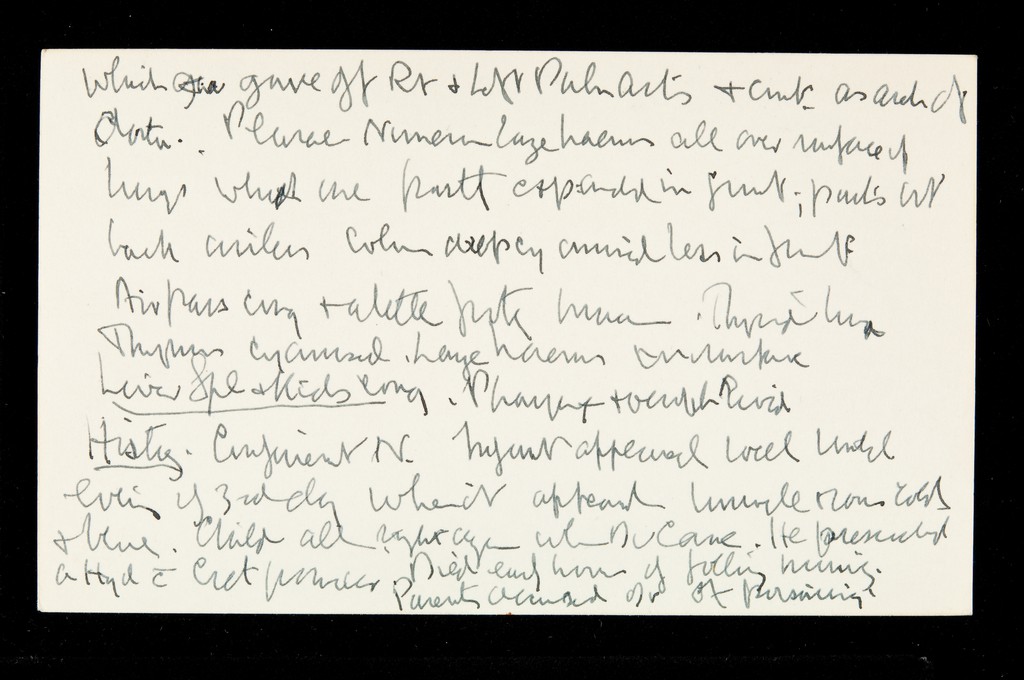 which gave off Rt & Left Pulm Arts & cont as arch of
Aorta. Pleurae Numerous large haems all over surface of
lungs which are partly expanded in front; parts at
back colour deeply cyanosed less in front
Air pass cong & a little frothy mucus. Thyroid large
Thymus cyanosed. Large haems on surface
Liver Spl & Kids cong. Pharynx & oesoph livid
History. Confinement N. Infant appeared well until
evening of 3rd day when it appeared cold
& blue. Child all right again when Dr came. He prescribed
a Hyd c Cret powder. Died early hours of following morning.
Parents accused Dr of poisoning